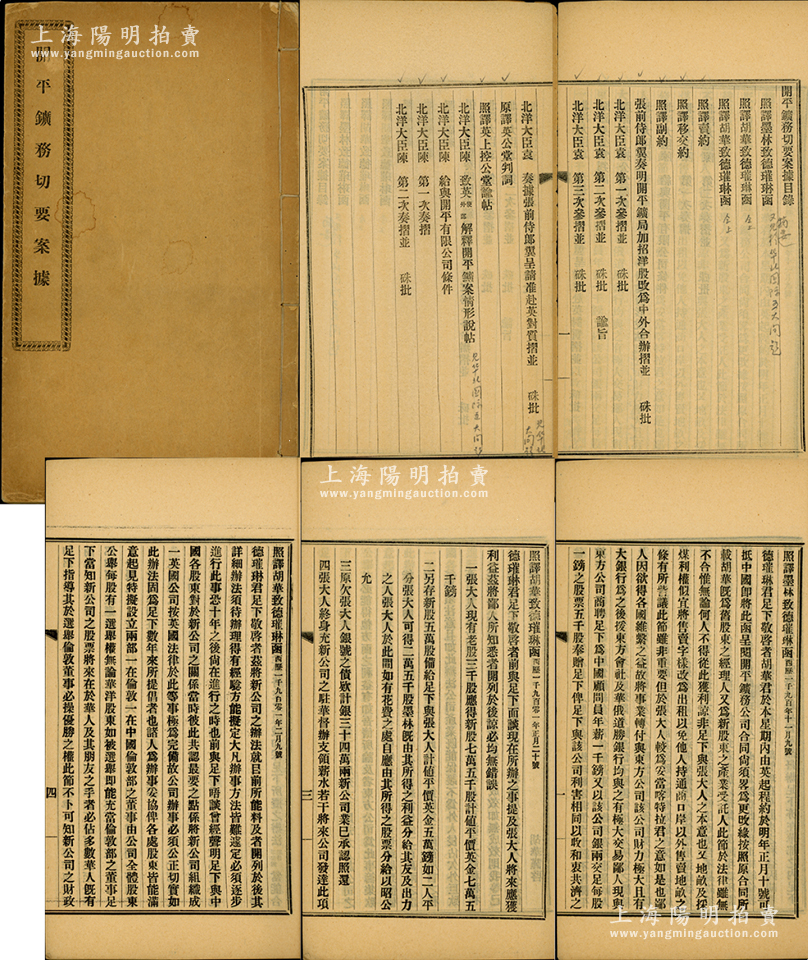 上海陽明拍賣
www.yangmingauction.com
開平鑛務切要案據
開平鑛務切要案據目錄
照譯墨林致德璀琳函
照譯胡華致德璀琳函 仝上
照譯胡華致德璀琳函 仝上
照譯賣約
照譯移交約
照譯副約
張前侍郎翼奏明開平鑛局加招洋股改爲中外合辦摺並 硃批
北洋大臣袁 第一次參摺並 硃批
北洋大臣袁 第二次參摺並 諭旨
北洋大臣袁 第三次參摺並 硃批
上海陽明拍賣
www.yangmingauction.com
北洋大臣袁 奏據張前侍郎翼呈請准赴英對質摺並 硃批
原譯英公堂判詞
照譯英上控公堂諭帖
北洋大臣陳 致英外部 解釋開平鑛案情形說帖
北洋大臣陳 給與開平有限公司條件
北洋大臣陳 第一次奏摺
北洋大臣陳 第二次奏摺並 硃批
照譯墨林致德璀琳函 西歷一千九百年十一月九號
德璀琳君足下敬啓者胡華君於本星期內由英起程約於明年正月十號可
抵中國卽將此函呈閱開平鑛務公司合同尙須畧爲更改緣按照原合同所
載胡華旣爲舊股東之經理人又爲新股東之產業受託人此節於法律雖無
不合惟無論何人不得從此獲利諒非足下與張大人之本意也又地畝及採
煤利權似宜將售賣字樣改爲出租以免他人持通商口岸以外售賣地畝之
條有所訾議此節雖非重要但於張大人較爲安當喀特拉君之意如是也鄙
人因欲得各國維繫之益故將事業轉付與東方公司該公司財力極大且有
大銀行爲之後援東方會社及華俄道勝銀行均與之有極大交易鄙人現與
東方公司商聘足下爲中國顧問員年薪一千鎊又以該公司銀兩交足每股
一鎊之股票五千股奉贈足下俾足下與該公司利害相同以收和衷共濟之
一
照譯胡華致德璀琳函 西歷一千九百零一年正月二十號
德璀琳君足下敬啓者前與足下面談現在所辦之事提及張大人將來應獲
利益茲將鄙人所知悉者開列於後諒必均無錯誤
一張大人現有老股三千股應得新股七萬五千股計値平價英金七萬五
千鎊
二另存新股五萬股備給足下與張大人計値平價英金五萬鎊如二人平
分張大人可得二萬五千股墨林旣由其所得之利益分給其友及出力
之人張大人於此間如有花費之處自應由其所得之股票分給以昭公
允
三原欠張大人銀號之債欵計銀三十四萬兩新公司業已承認照還
四張大人終身充新公司之駐華督辦支領薪水若干將來公司發達此項
三
照譯胡華致德璀琳函 西歷一千九百零一年二月九號
德璀琳君足下敬啓者茲將新公司之辦法就目前所能料及者開列於後其
詳細辦法須待辦理得有經驗方能擬定大凡辦事方法皆難遽定必須逐步
進行此事恐十年之後尙在進行之時也前與足下晤談曾經聲明足下與中
國各股東對於新公司之關係當時彼此共認最要之點係將新公司組織成
一英國公司按英國法律於此等事極爲完備故公司辦事必須公正切實如
此辦法因爲足下數年來所提倡者也諸人爲辦事妥協俾各處股東皆能滿
意起見特擬設立兩部一在倫敦一在中國倫敦部之董事由公司全體股東
公舉每股有一選舉權無論華洋股東如被選舉卽能充當倫敦部之董事足
下當知新公司之股票將來在於華人及其朋友之手者必佔多數華人旣有
足下指導其於選舉倫敦董事必操優勝之權此節不卜可知新公司之財政
四
上海陽明拍賣
www.yangmingauction.com
上海陽明拍賣
www.yangmingauction.com